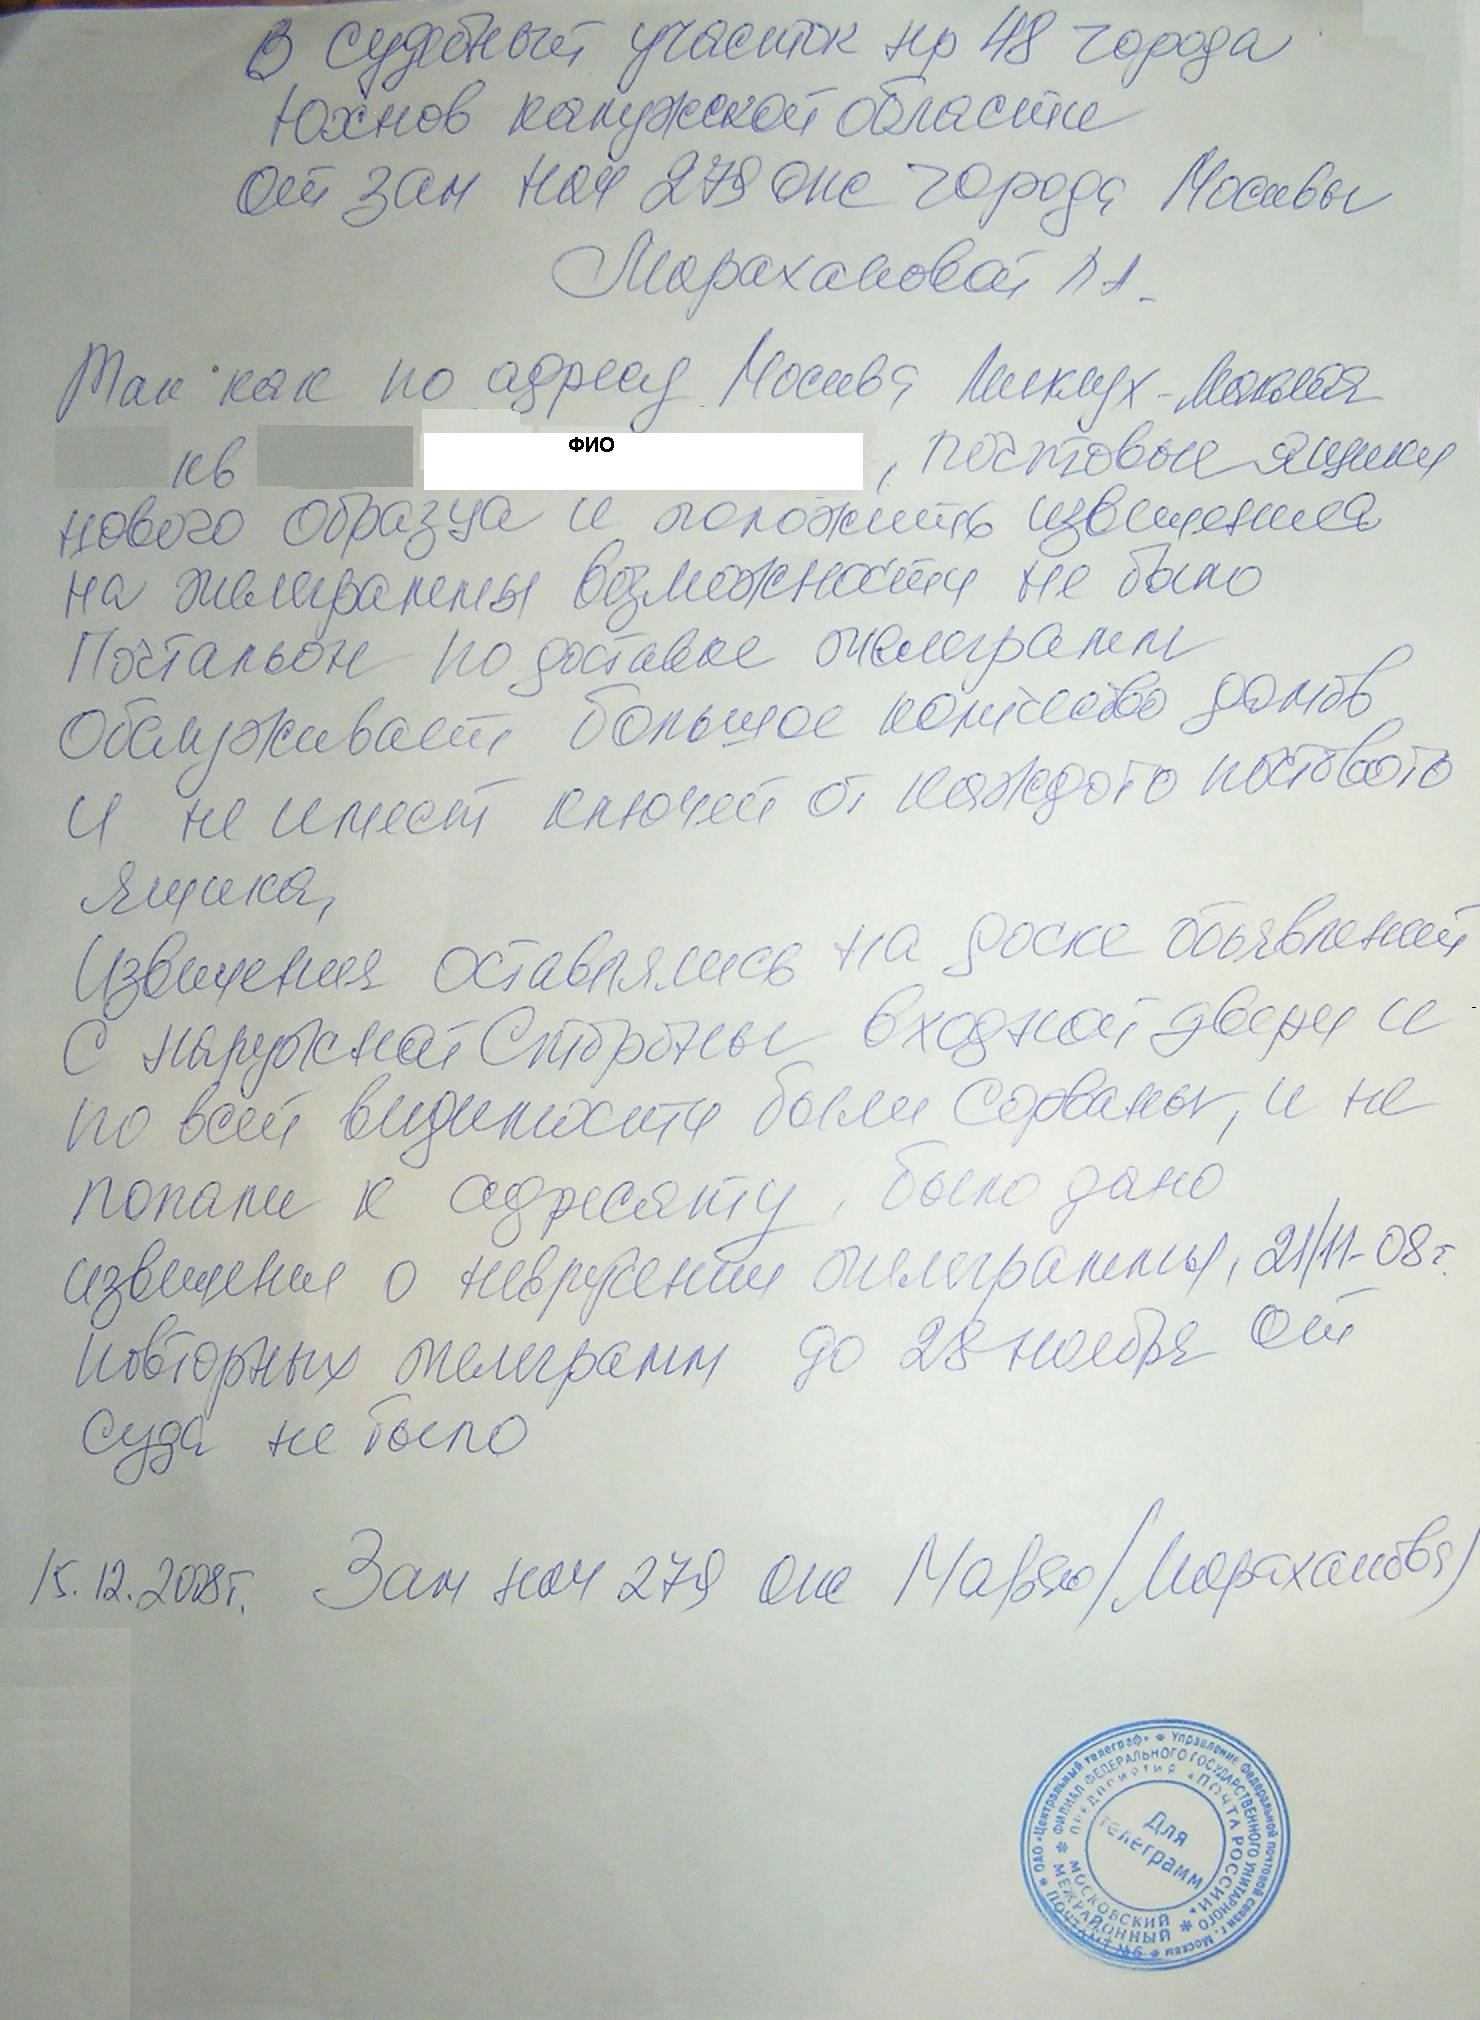 В судебный участок нр 48 города
Юхнов калужской области
От зам нач 279 опс города Москвы
Марахановой
Так как по адресу Москва Миклух-Маклая
кв ФИО , почтовые ящики
нового образца и положить извещения
на телеграммы возможности не было
Почтальон по доставке телеграмм
Обслуживает большое количество домов
и не имеет ключей от каждого почтового
ящика,
Извещения оставлялись на доске объявлений
С наружной Стороны входной двери и
по всей видимости были Сорваны, и не
попали к адресату, было дано
извещение о невручении телеграммы, 21/11-08г.
Повторных телеграмм до 28 ноября От
Суда не было
15.12.2008г. Зам нач 279 опс /Мараханова/
ОАО «Центральный телеграф» * Управление Федеральной почтовой связи г. Москвы *
ФИЛИАЛ ФЕДЕРАЛЬНОГО ГОСУДАРСТВЕННОГО УНИТАРНОГО
ПРЕДПРИЯТИЯ «ПОЧТА РОССИИ» *
МОСКОВСКИЙ
МЕЖРАЙОННЫЙ
ПОЧТАМТ №6
Для
телеграмм